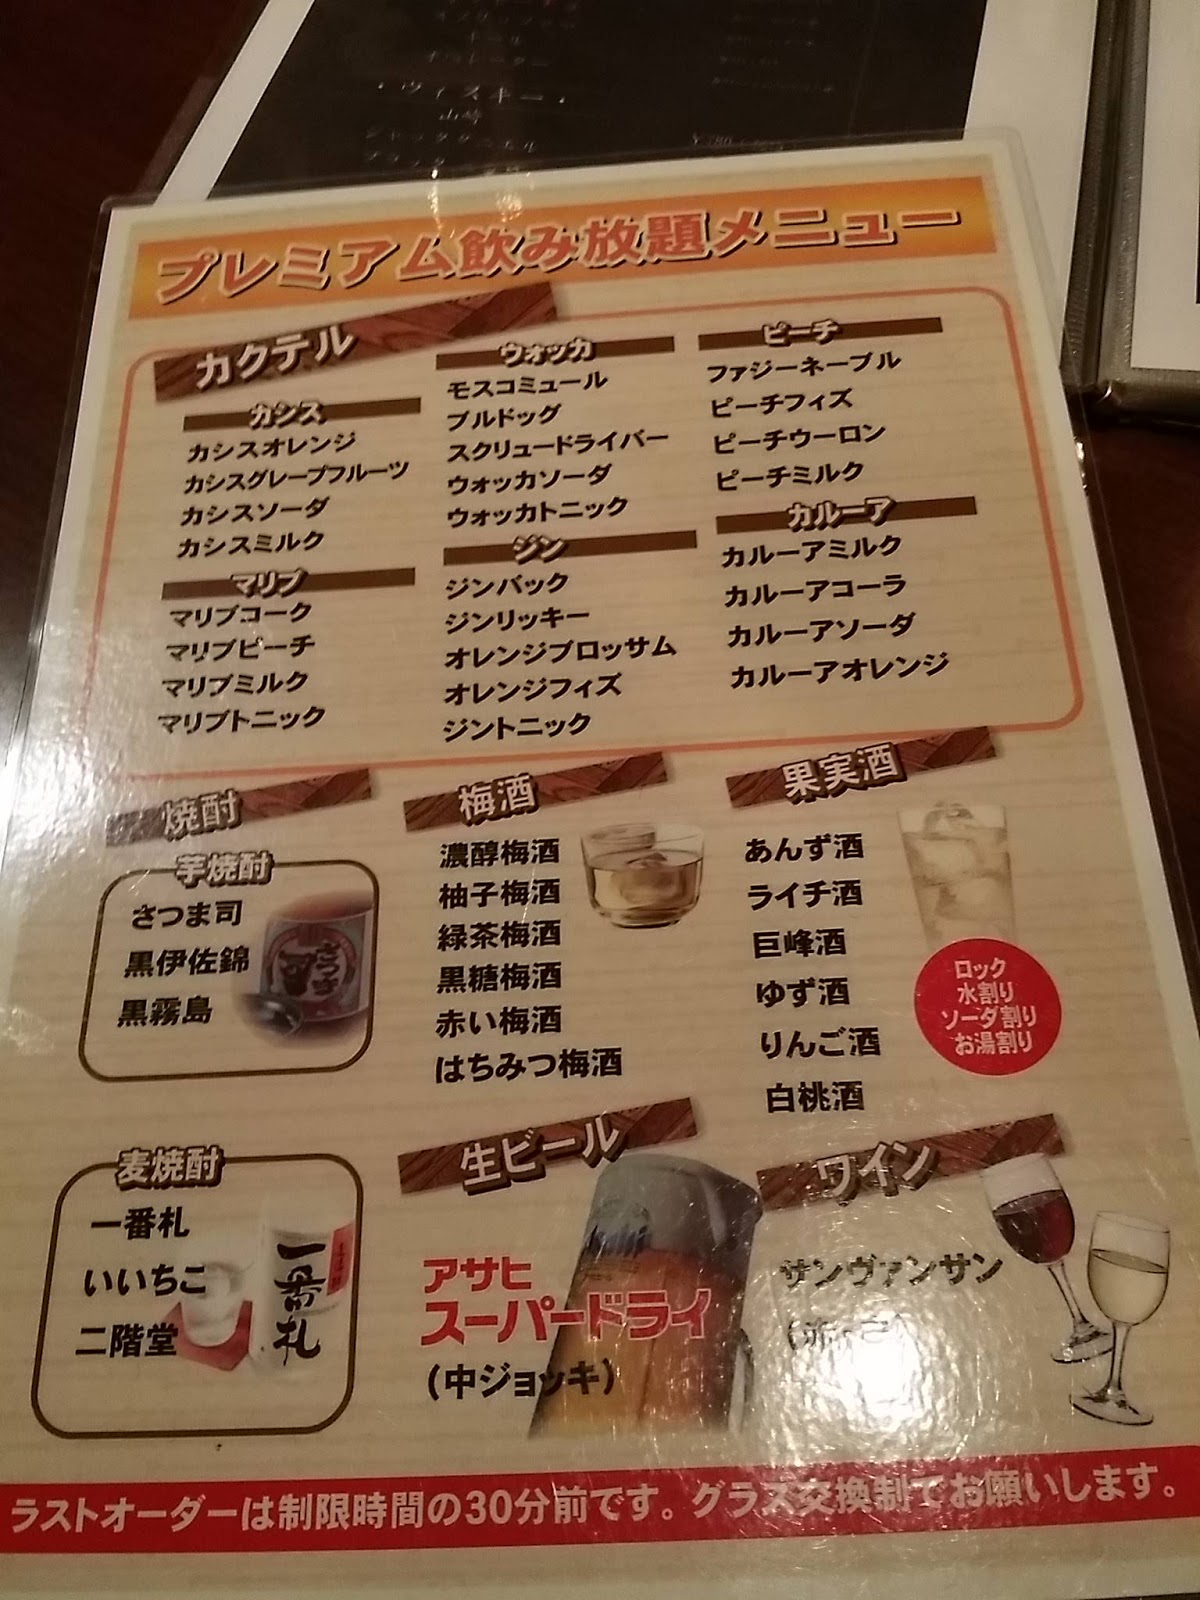 ・ウィスキー・
山崎
プレミアム飲み放題メニュー
カクテル
カシス
カシスオレンジ
カシスグレープフルーツ
カシスソーダ
カシスミルク
マリブ
マリブコーク
マリブピーチ
マリブミルク
マリブトニック
ウォッカ
モスコミュール
ブルドッグ
スクリュードライバー
ウォッカソーダ
ウォッカトニック
ジン
ジンバック
ジンリッキー
オレンジブロッサム
オレンジフィズ
ジントニック
ピーチ
ファジーネーブル
ピーチフィズ
ピーチウーロン
ピーチミルク
カルーア
カルーアミルク
カルーアコーラ
カルーアソーダ
カルーアオレンジ
焼酎
芋焼酎
さつま司
黒伊佐錦
黒霧島
さつま司
麦焼酎
一番札
いいちこ
二階堂
一番札
梅酒
濃醇梅酒
柚子梅酒
緑茶梅酒
黒糖梅酒
赤い梅酒
はちみつ梅酒
果実酒
あんず酒
ライチ酒
巨峰酒
ゆず酒
りんご酒
白桃酒
ロック
水割り
ソーダ割り
お湯割り
生ビール
アサヒ
スーパードライ
(中ジョッキ)
Asahi
ワイン
サンヴァンサン
(赤・白)
ラストオーダーは制限時間の30分前です。グラス交換制でお願いします。